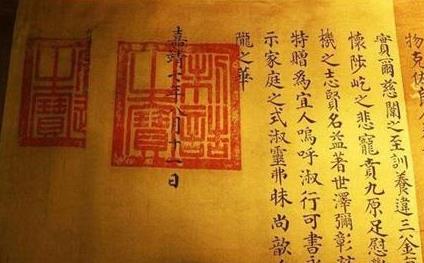 物克
實爾慈闈之至訓養違三
懷陟屺之悲寵賁九原足慰
機之志賢名益著世澤彌彰
特贈為宜人嗚呼淑行可書
示家庭之式淑靈弗昧尚歆
隴之華
嘉靖七年八月十一日
制誥
之寶